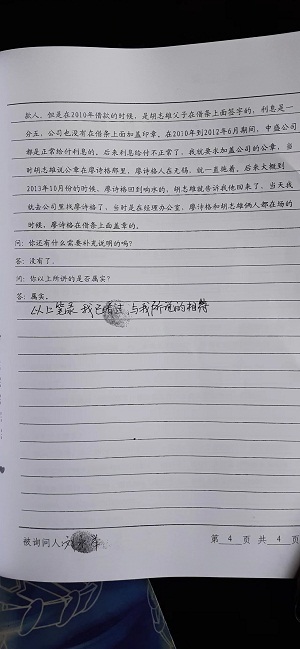 款人，但是在2010年借款的时候，是胡志雄父子在借条上面签字的，利息是一
分五，公司也没有在借条上面加盖印章。在2010年到2012年6月期间，中盛公司
都是正常给付利息的，后来利息给付不正常了，我就要求加盖公司的公章，当
时胡志雄说公章在廖诗格那里，廖诗格人在无锡，就一直拖着，后来大概到
2013年10月份的时候，廖诗格回到响水的，胡志雄就告诉我他回来了，当天我
就去公司里找廖诗格了，当时是在经理办公室，廖诗格和胡志雄俩人都在场的
时候，廖诗格在借条上面盖章的。
问：你还有什么需要补充说明的吗？
答：没有了。
问：你以上所讲的是否属实？
答：属实。
以上笔录我已看过，与我所说的相符
被询问人：
第 4 页 共 4 页